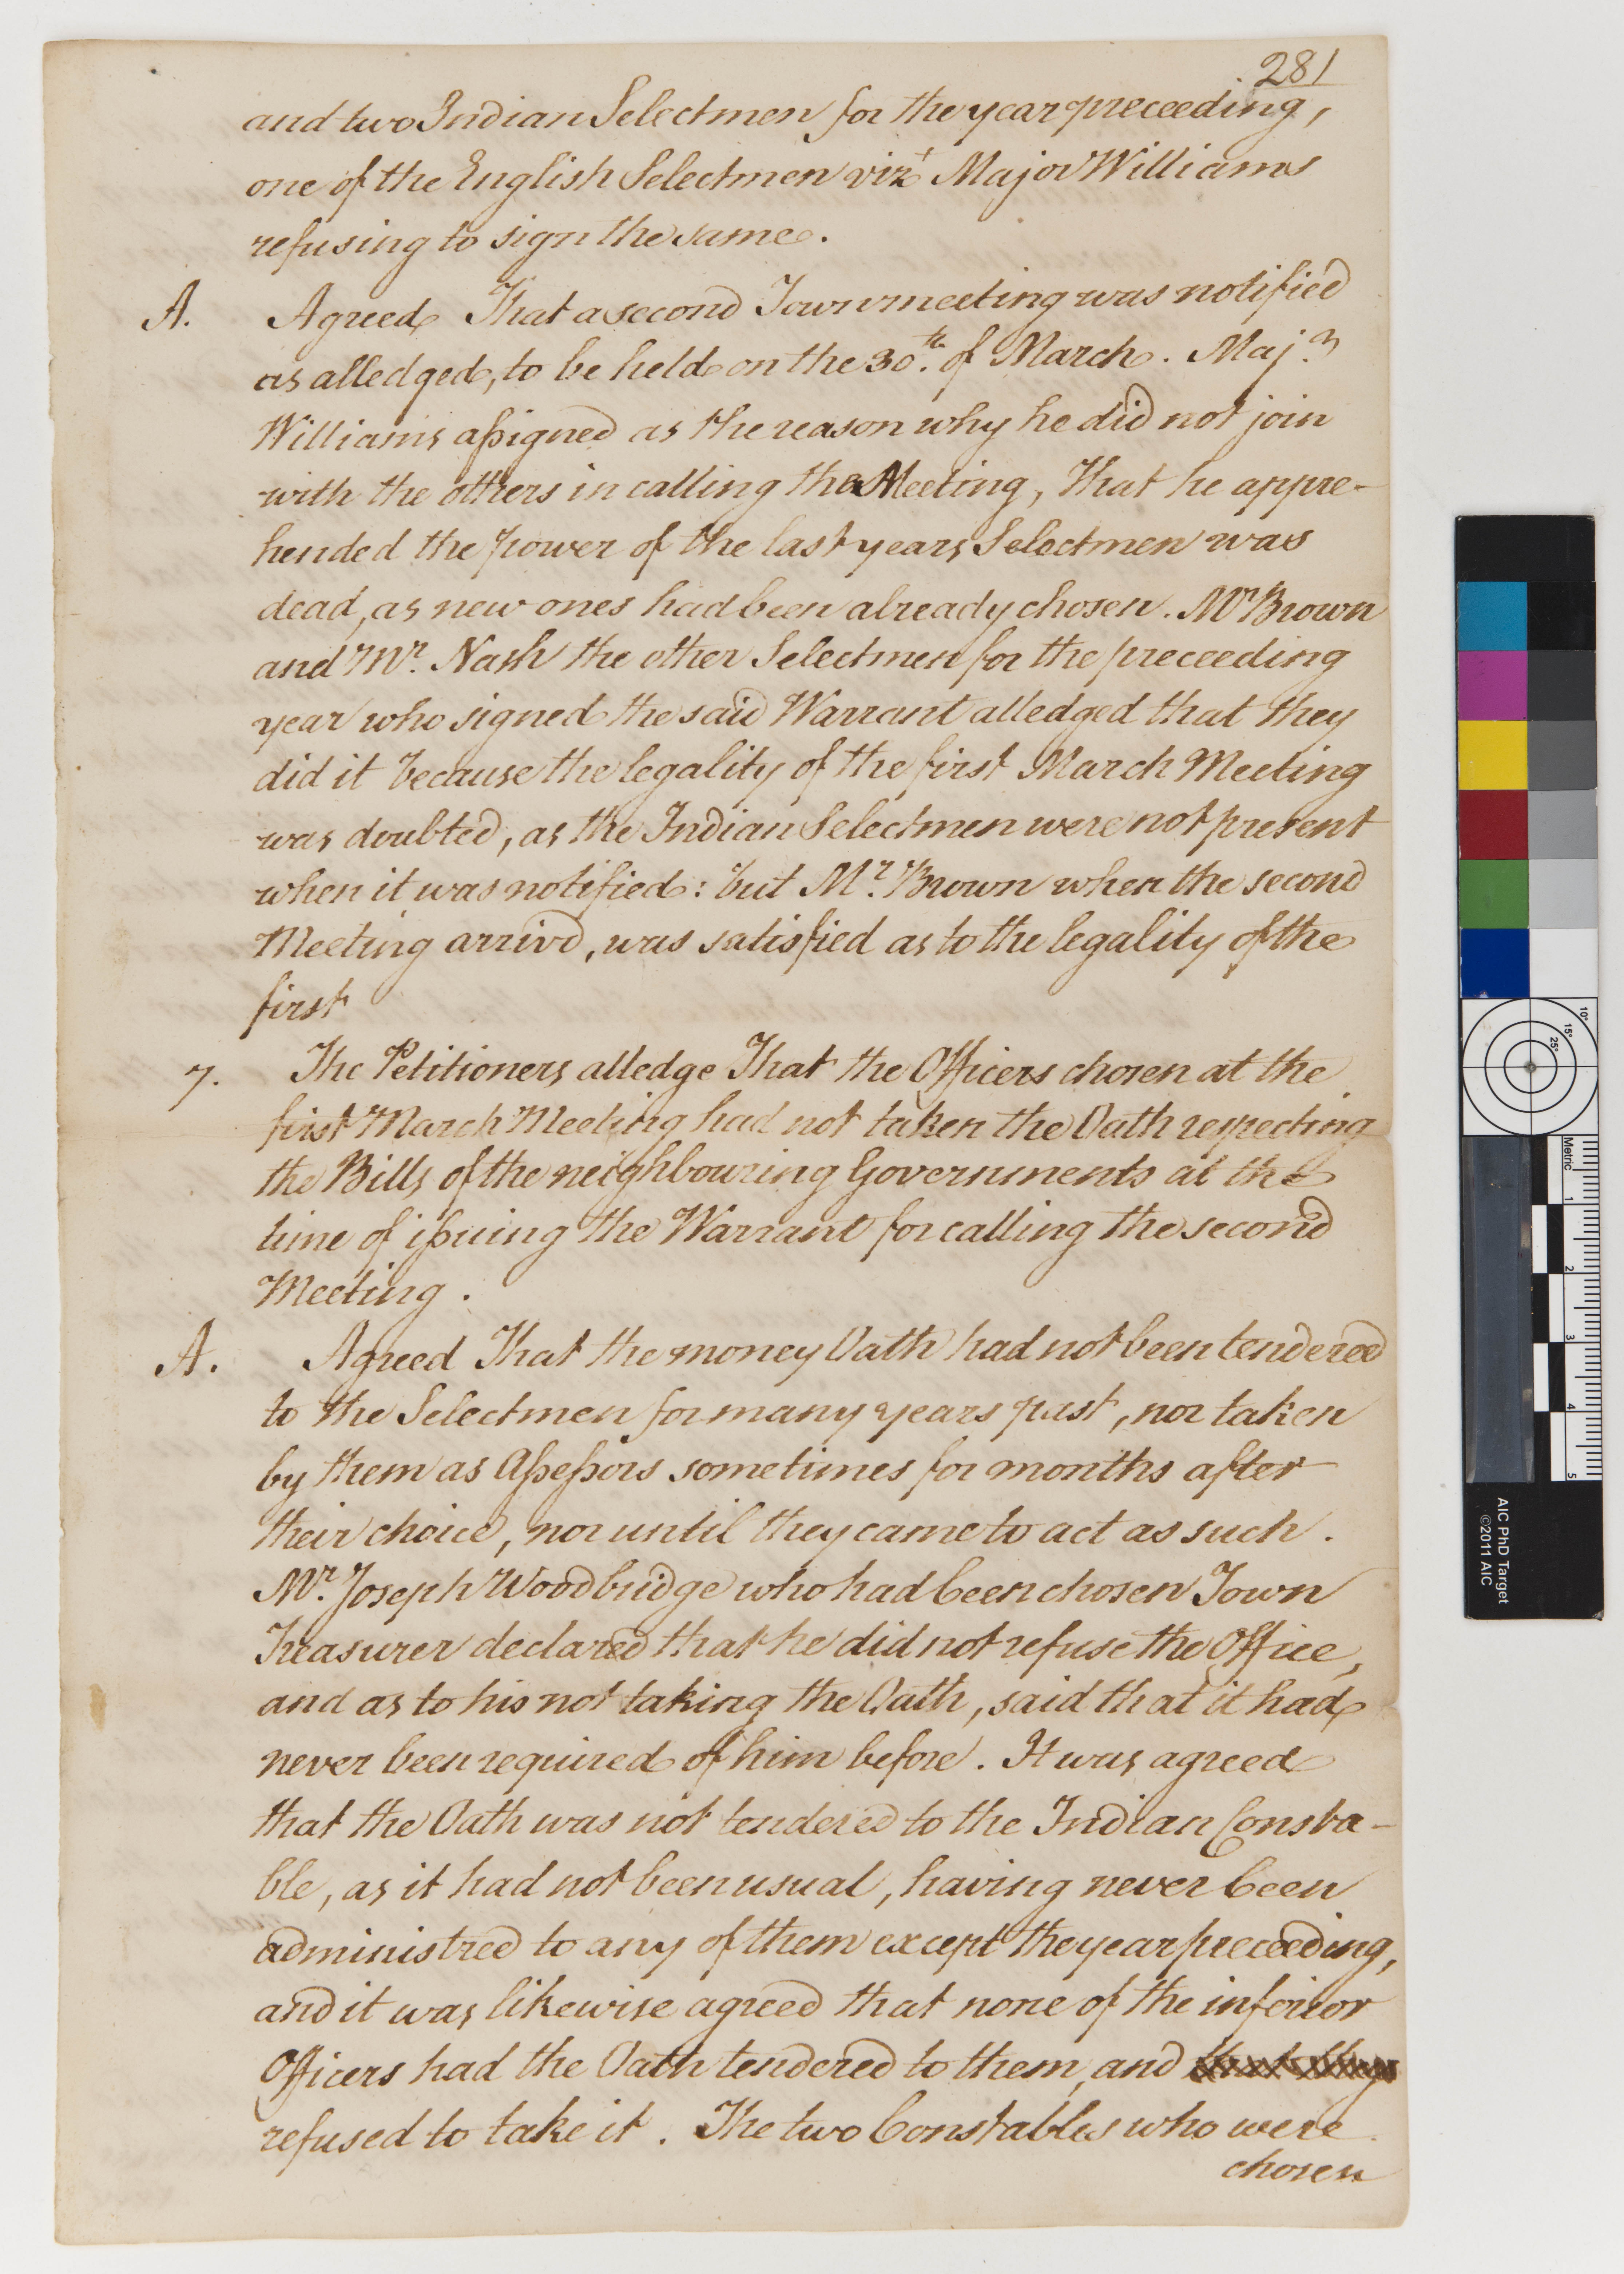 281
and two Indian Selectmen for the year preceeding,
one of the English Selectmen vizt Major Williams
refusing to sign the same.
A. Agreed That a second Town meeting was notified
as alledged, to be held on the 30th. of March. Majr.
Williams assigned as the reason why he did not join
with the others in calling the Meeting, That he appre-
hended the power of the last years Selectmen was
dead, as new ones had been already chosen. Mr Brown
and Mr. Nash the other Selectmen for the preceeding
year who signed the said Warrant alledged that they
did it because the legality of the first March Meeting
was doubted, as the Indian Selectmen were not present
when it was notified: but Mr. Brown when the second
Meeting arrivd, was satisfied as to the legality of the
first
7. The Petitioners alledge That the Officers chosen at the
first March Meeting had not taken the Oath respecting
the Bills of the neighbouring Governments at the
time of issuing the Warrant for calling the second
Meeting.
A. Agreed That the money Oath had not been tendered
to the Selectmen for many years past, nor taken
by them as Assessors sometimes for months after
their choice, nor until they came to act as such.
Mr. Joseph Woodbridge who had been chosen Town
Treasurer declared that he did not refuse the Office,
and as to his not taking the Oath, said that it had
never been required of him before. It was agreed
that the Oath was not tendered to the Indian Consta-
ble, as it had not been usual, having never been
administred to any of them except the year preceeding,
and it was likewise agreed that none of the inferior
Officers had the Oath tendered to them, and
refused to take it. The two Constables who were
chosen
10°
15°
25°
Metric
1
2
3
4
5
AIC PhD Target
©2011 AIC